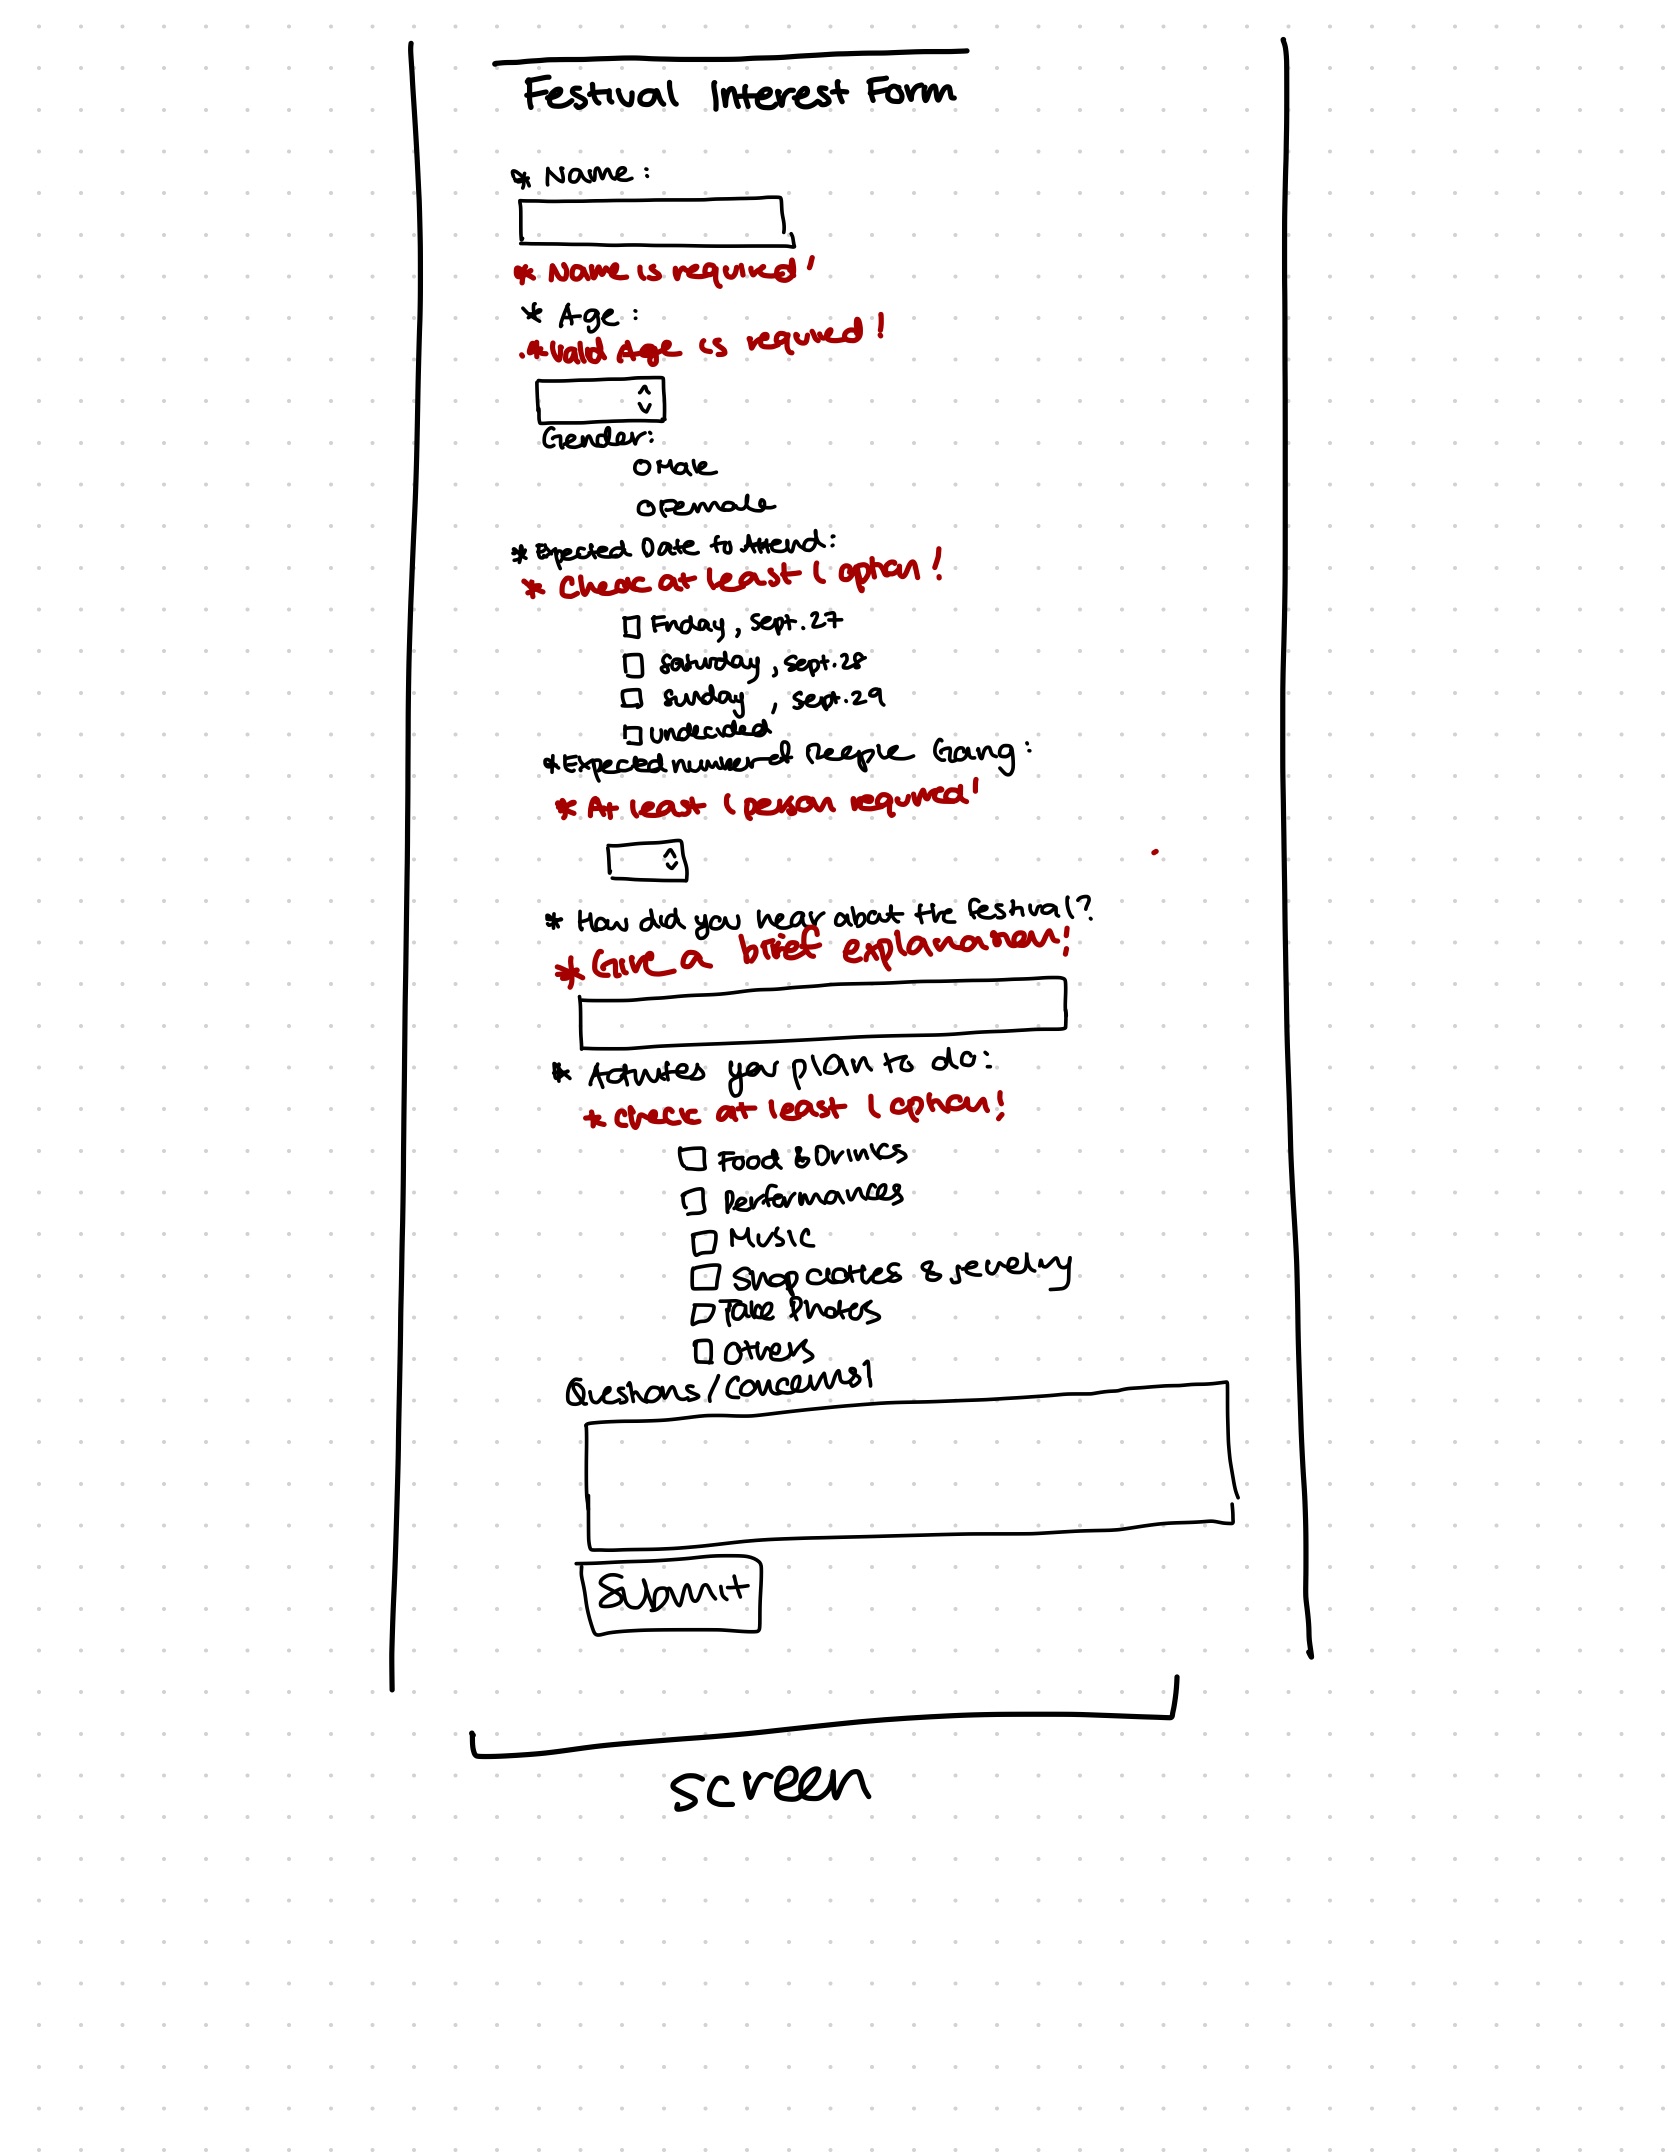 Festival Interest Form
* Name:
* Name is required!
* Age:
* Valid Age is required!
Gender:
Male
Female
* Expected Date to Attend:
* Check at least 1 option!
Friday, Sept. 27
Saturday, Sept. 28
Sunday, Sept. 29
undecided
* Expected number of People Going:
* At least 1 person required!
* How did you hear about the festival?
* Give a brief explanation!
* Activites you plan to do:
* Check at least 1 option!
Food & Drinks
Performances
Music
Shop clothes & jewelry
Take Photos
Others
Questions/Concerns!
Submit
screen